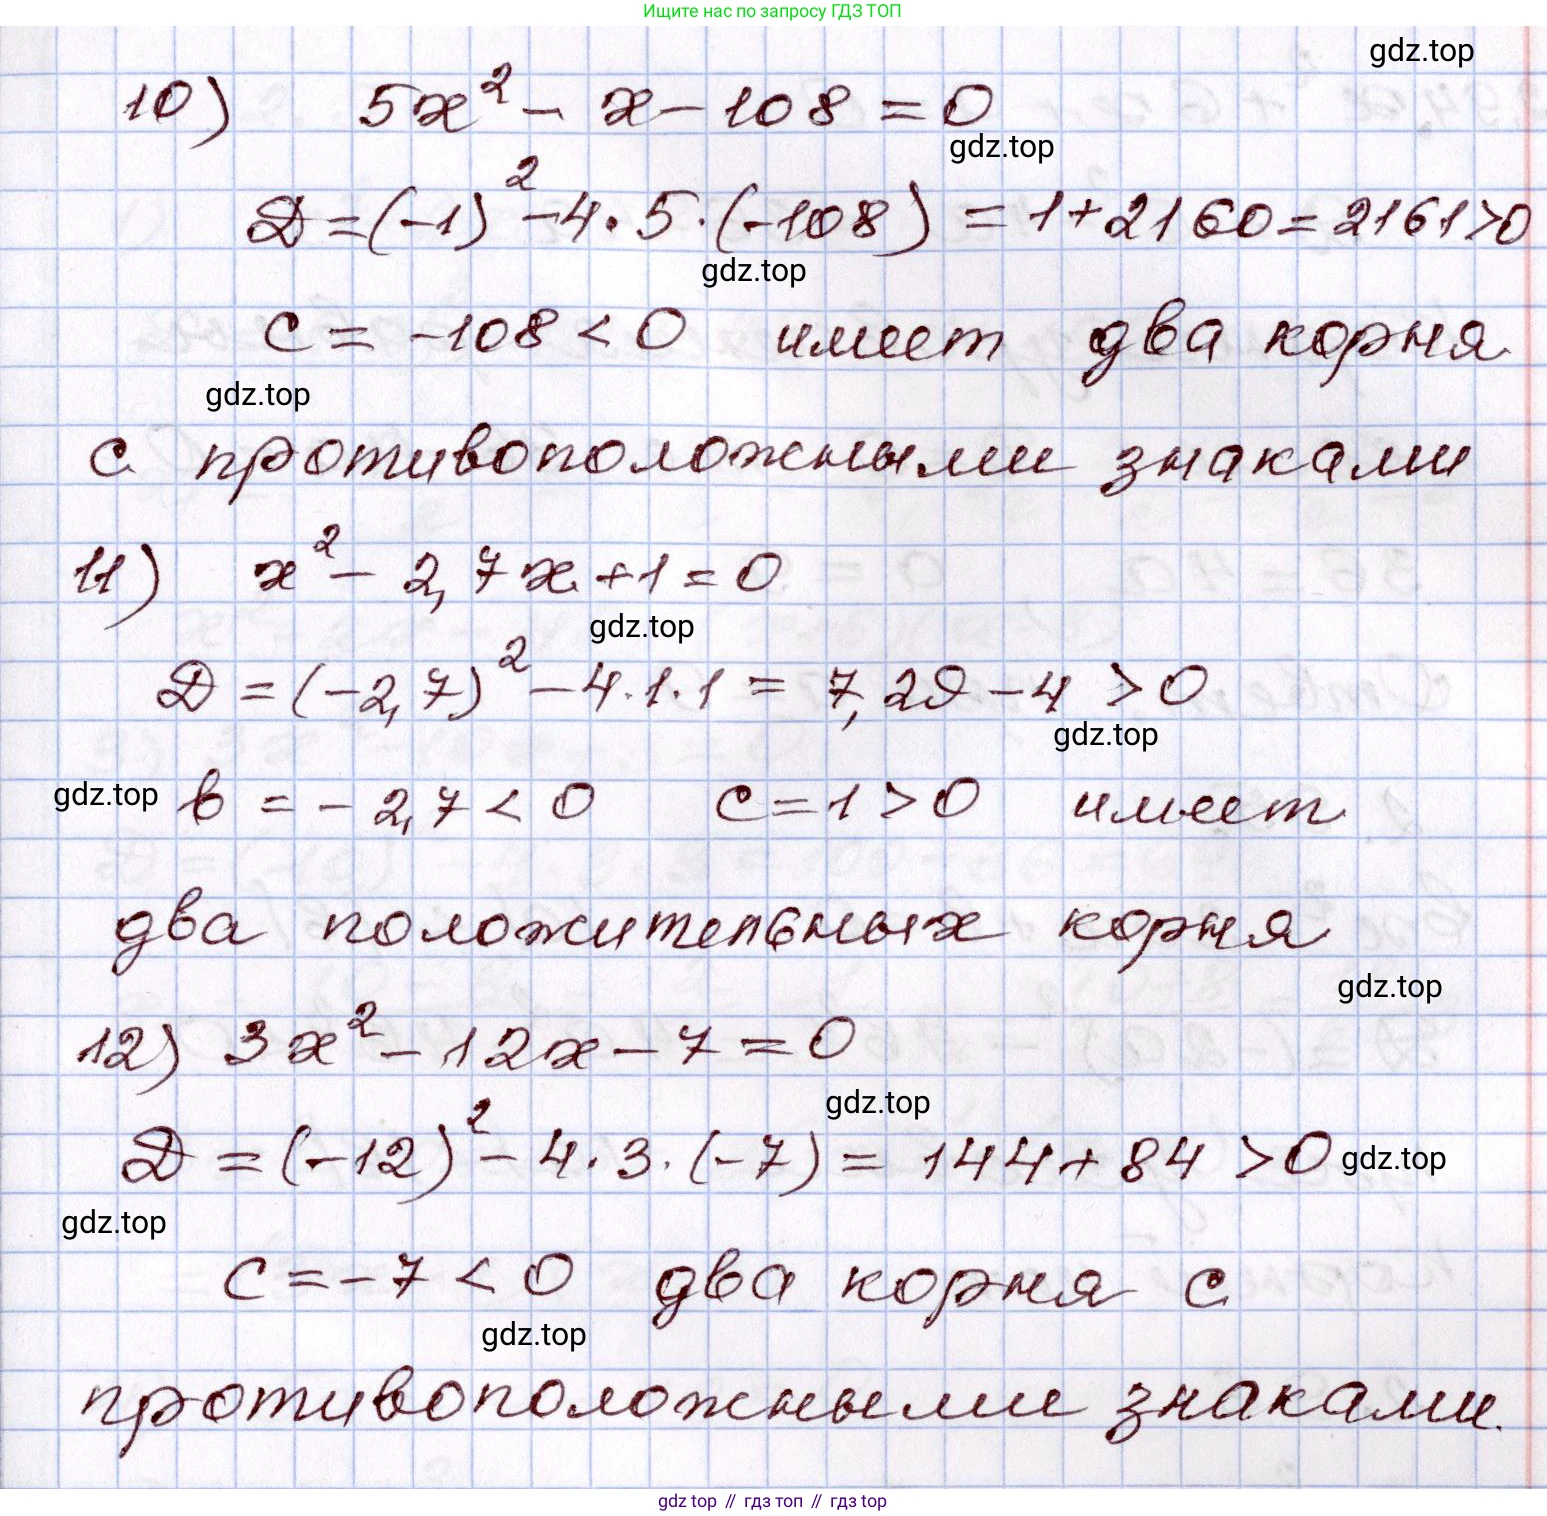 Ищите нас по запросу ГДЗ ТОП
gdz.top
10) 5x² - x - 108 = 0
gdz.top
D = (-1)² - 4 · 5 · (-108) = 1 + 2160 = 2161 > 0
gdz.top
c = -108 < 0 имеет два корня
gdz.top
с противоположными знаками
11) x² - 2,7x + 1 = 0
gdz.top
D = (-2,7)² - 4 · 1 · 1 = 7,29 - 4 > 0
gdz.top
gdz.top b = - 2,7 < 0 c = 1 > 0 имеет
два положительных корня
gdz.top
12) 3x² - 12x - 7 = 0
gdz.top
D = (-12)² - 4 · 3 · (-7) = 144 + 84 > 0 gdz.top
gdz.top
c = - 7 < 0 два корня с
gdz.top
противоположными знаками.
gdz top // гдз топ // gdz top